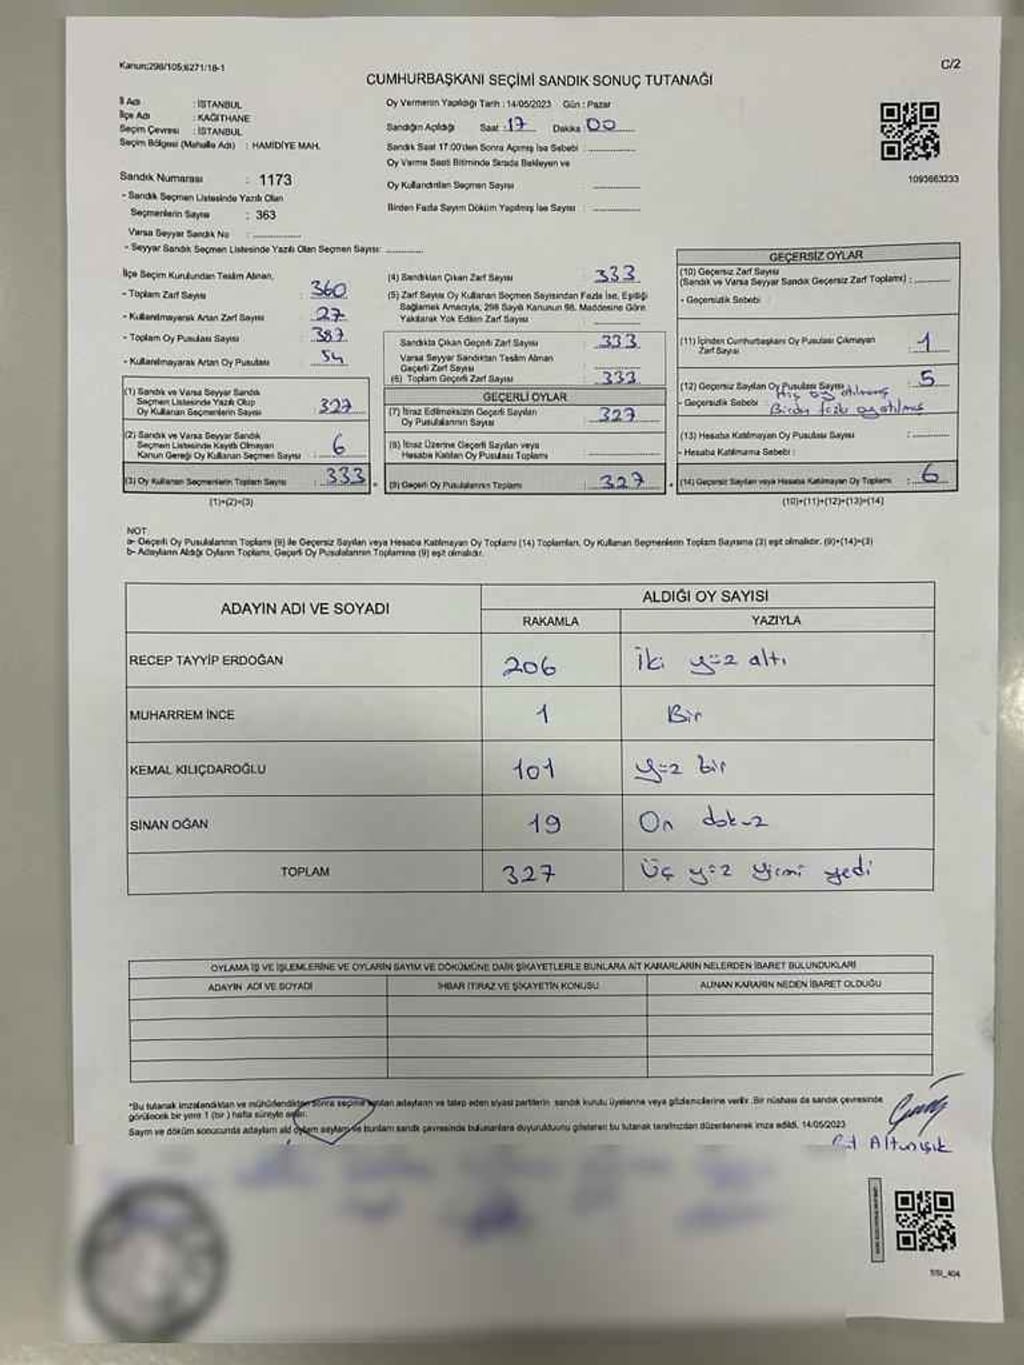 Kanun:298/105;6271/18-1
C/2
CUMHURBAŞKANI SEÇİMİ SANDIK SONUÇ TUTANAĞI
İl Adı : İSTANBUL
İlçe Adı : KAĞITHANE
Seçim Çevresi : İSTANBUL
Seçim Bölgesi (Mahalle Adı) : HAMİDİYE MAH.
Sandık Numarası : 1173
- Sandık Seçmen Listesinde Yazılı Olan
Seçmenlerin Sayısı : 363
Varsa Seyyar Sandık No :
- Seyyar Sandık Seçmen Listesinde Yazılı Olan Seçmen Sayısı:
Oy Vermenin Yapıldığı Tarih : 14/05/2023 Gün : Pazar
Sandığın Açıldığı Saat : 17 Dakika : 00
Sandık Saat 17:00'den Sonra Açımış İse Sebebi :
Oy Verme Saati Bitiminde Sırada Bekleyen ve
Oy Kullandırılan Seçmen Sayısı :
Birden Fazla Sayım Döküm Yapılmış İse Sayısı :
1093663233
İlçe Seçim Kurulundan Teslim Alınan,
- Toplam Zarf Sayısı : 360
- Kullanılmayarak Artan Zarf Sayısı : 27
- Toplam Oy Pusulası Sayısı : 387
- Kullanılmayarak Artan Oy Pusulası : 54
(1) Sandık ve Varsa Seyyar Sandık
Seçmen Listesinde Yazılı Olup
Oy Kullanan Seçmenlerin Sayısı : 327
(2) Sandık ve Varsa Seyyar Sandık
Seçmen Listesinde Kayıtlı Olmayan
Kanun Gereği Oy Kullanan Seçmen Sayısı : 6
(3) Oy Kullanan Seçmenlerin Toplam Sayısı : 333
(1)+(2)=(3)
(4) Sandıktan Çıkan Zarf Sayısı : 333
(5) Zarf Sayısı Oy Kullanan Seçmen Sayısından Fazla İse, Eşitliği
Sağlamak Amacıyla, 298 Sayılı Kanunun 98. Maddesine Göre
Yakılarak Yok Edilen Zarf Sayısı :
Sandıkta Çıkan Geçerli Zarf Sayısı : 333
Varsa Seyyar Sandıktan Teslim Alınan
Geçerli Zarf Sayısı :
(6) Toplam Geçerli Zarf Sayısı : 333
GEÇERLİ OYLAR
(7) İtiraz Edilmeksizin Geçerli Sayılan
Oy Pusulalarının Sayısı : 327
(8) İtiraz Üzerine Geçerli Sayılan veya
Hesaba Katılan Oy Pusulası Toplamı :
(9) Geçerli Oy Pusulalarının Toplamı : 327
GEÇERSİZ OYLAR
(10) Geçersiz Zarf Sayısı
(Sandık ve Varsa Seyyar Sandık Geçersiz Zarf Toplamı) :
- Geçersizlik Sebebi
(11) İçinden Cumhurbaşkanı Oy Pusulası Çıkmayan
Zarf Sayısı : 1
(12) Geçersiz Sayılan Oy Pusulası Sayısı : 5
- Geçersizlik Sebebi : Hiç oy atılmamış
Birden fazla oy atılmış
(13) Hesaba Katılmayan Oy Pusulası Sayısı :
- Hesaba Katılmama Sebebi :
(14) Geçersiz Sayılan veya Hesaba Katılmayan Oy Toplamı : 6
(10)+(11)+(12)+(13)=(14)
NOT:
a- Geçerli Oy Pusulalarının Toplamı (9) ile Geçersiz Sayılan veya Hesaba Katılmayan Oy Toplamı (14) Toplamları, Oy Kullanan Seçmenlerin Toplam Sayısına (3) eşit olmalıdır. (9)+(14)=(3)
b- Adayların Aldığı Oyların Toplamı, Geçerli Oy Pusulalarının Toplamına (9) eşit olmalıdır.
ADAYIN ADI VE SOYADI
ALDIĞI OY SAYISI
RAKAMLA
YAZIYLA
RECEP TAYYİP ERDOĞAN 206 İki yüz altı
MUHARREM İNCE 1 Bir
KEMAL KILIÇDAROĞLU 101 yüz bir
SİNAN OĞAN 19 On dokuz
TOPLAM 327 Üç yüz yirmi yedi
OYLAMA İŞ VE İŞLEMLERİNE VE OYLARIN SAYIM VE DÖKÜMÜNE DAİR ŞİKAYETLERLE BUNLARA AİT KARARLARIN NELERDEN İBARET BULUNDUKLARI
ADAYIN ADI VE SOYADI
İHBAR İTİRAZ VE ŞİKAYETİN KONUSU
ALINAN KARARIN NEDEN İBARET OLDUĞU
*Bu tutanak imzalandıktan ve mühürlendikten sonra seçime katılan adayların ve talep eden siyasi partilerin sandık kurulu üyelerine veya gözlemcilerine verilir. Bir nüshası da sandık çevresinde
görülecek bir yere 1 (bir) hafta süreyle asılır.
Sayım ve döküm sonucunda adayların aldığı oyların sayıları ve bunların sandık çevresinde bulunanlara duyurulduğunu gösteren bu tutanak tarafımızdan düzenlenerek imza edildi. 14/05/2023
Altunışık
SSI_404